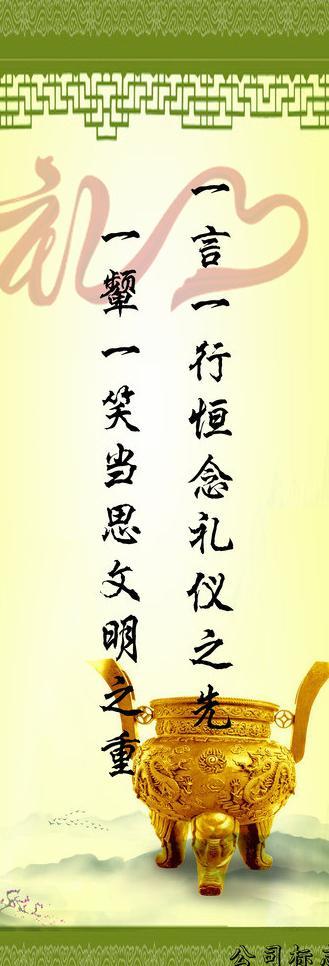 礼
一言一行恒念礼仪之先
一颦一笑当思文明之重
公司标